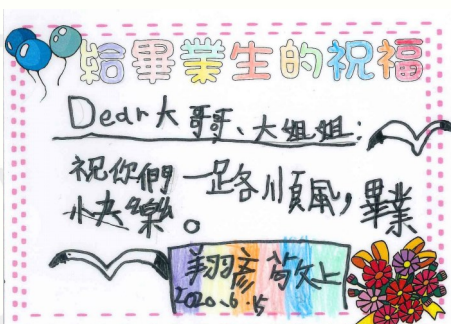 給畢業生的祝福
Dear 大哥哥、大姐姐:
祝你們一路順風,畢業
快樂。
翔彥敬上
2020.6.15